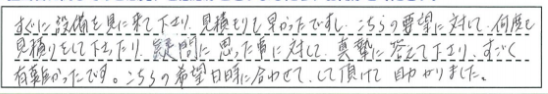 すぐに設備を見に来て下さり、見積もりも早かったですし、こちらの要望に対して、何度も
見積りをして下さったり、疑問に思った事に対して、真摯に答えて下さり、すごく
有難かったです。こちらの希望日時に合わせて、して頂けて助かりました。